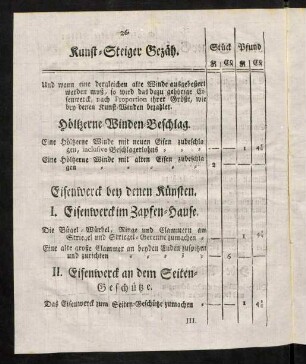 26
Kunst-Steiger Gezäh.
Stück Pfund
Und wann eine dergleichen alte Winde ausgebessert
werden muß, so wird das dazu gehörige Ei-
senwerck, nach Proportion ihrer Größe, wie
bey denen Kunst-Winden bezahlet.
Höltzerne Winden-Beschlag.
Eine Höltzerne Winde mit neuen Eisen zubeschla-
gen, inclusive Beschlagerlohns - - 1 4½
Eine Höltzerne Winde mit alten Eisen zubeschla-
gen 2 -
Eisenwerck bey denen Künsten.
I. Eisenwerck im Zapfen-Hause.
Die Bügel-Würbel, Ringe und Clammern am
Striegel und Striegel-Gerenne zumachen - - 1 4½
Eine alte große Clammer an beyden Enden zuspitzen
und zurichten - 6 - -
II. Eisenwerck an dem Seiten-
Geschütze.
Das Eisenwerck zum Seiten-Geschütze zumachen - - 1 4½
III.